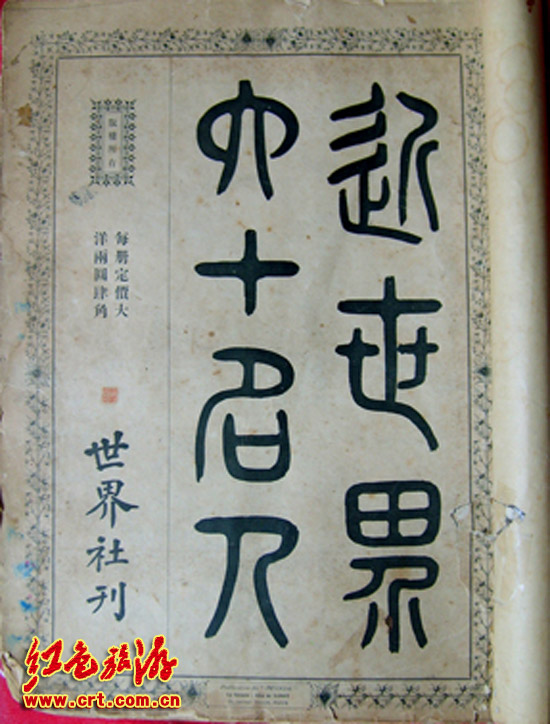 近世界
六十名人
版權所有
每册定價大
洋兩圓肆角
世界社刊
红色旅游
www.crt.com.cn